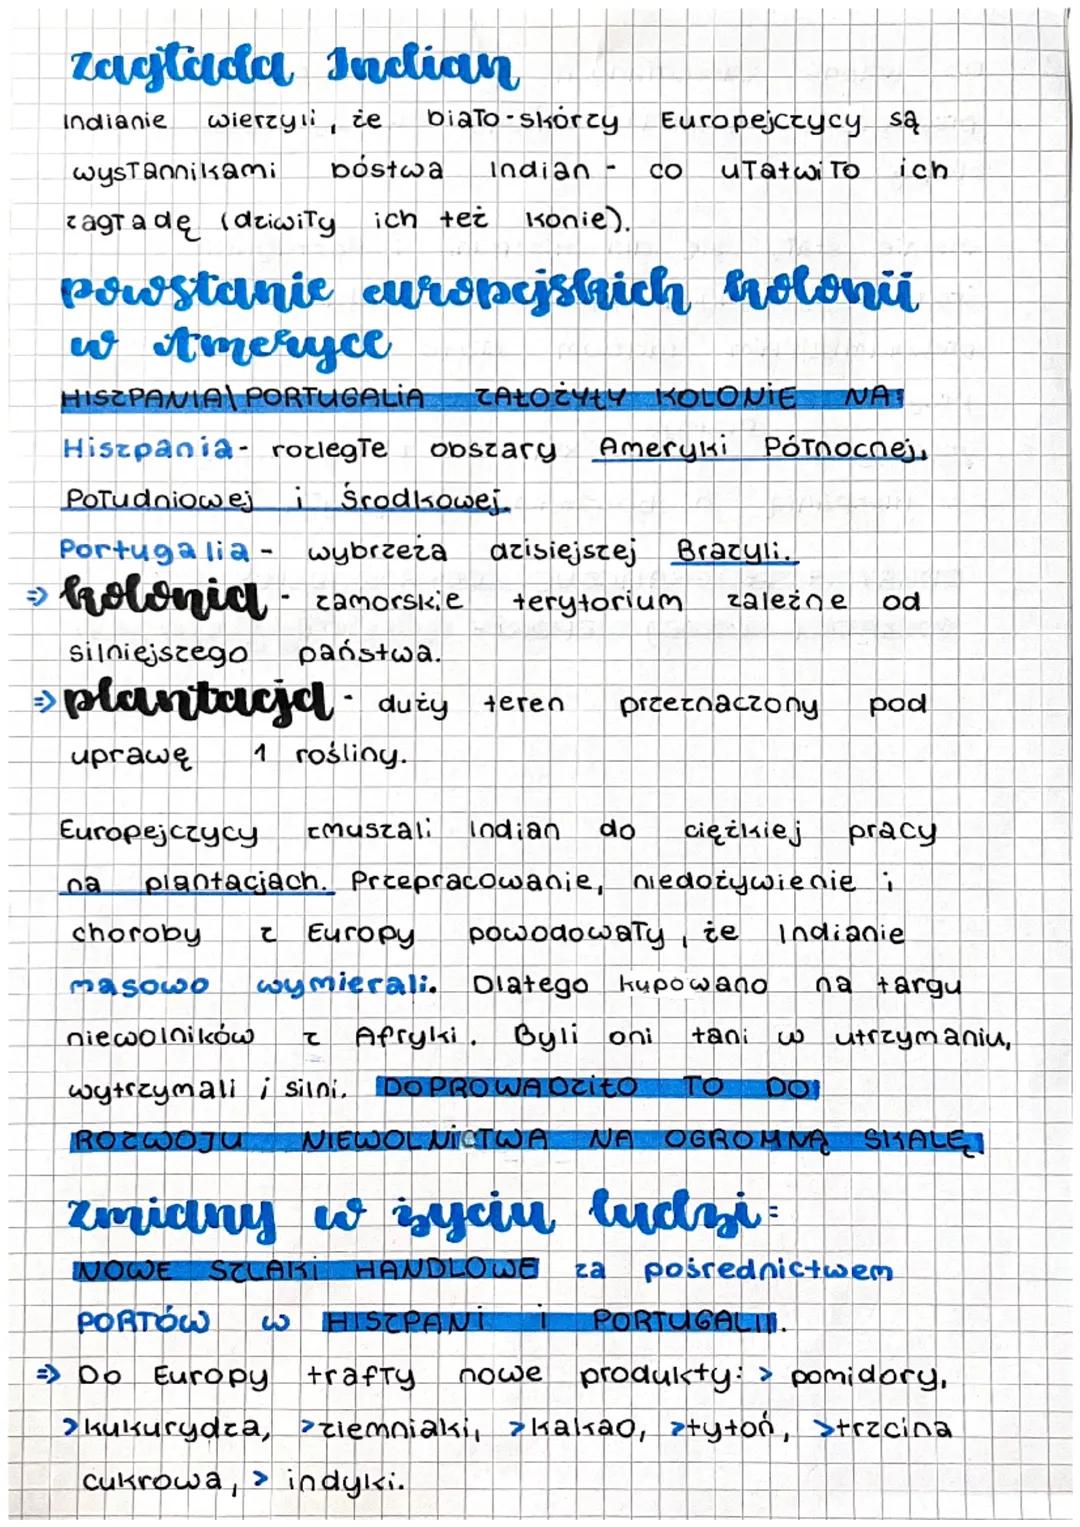 zagłada Indian
Indianie wierzyli, że biało-skórzy Europejczycy są
wysłannikami bóstwa Indian - co ułatwiło ich
zagładę (dziwiły ich też konie).
powstanie europejskich kolonii
w Ameryce
HISZPANIA\PORTUGALIA ZAŁOŻYŁY KOLONIE NA:
Hiszpania- rozległe obszary Ameryki Północnej,
Południowej i Środkowej.
Portugalia - wybrzeża dzisiejszej Brazyli.
⇒ kolonia - zamorskie terytorium zależne od
silniejszego państwa.
⇒ plantacja - duży teren przeznaczony pod
uprawę 1 rośliny.
Europejczycy zmuszali Indian do ciężkiej pracy
na plantacjach. Przepracowanie, niedożywienie i
choroby z Europy powodowały, że Indianie
masowo wymierali. Dlatego kupowano na targu
niewolników z Afryki. Byli oni tani w utrzymaniu,
wytrzymali i silni. DOPROWADZIŁO TO DO
ROZWOJU NIEWOLNICTWA NA OGROMNĄ SKALĘ
zmiany w życiu ludzi:
NOWE SZLAKI HANDLOWE za pośrednictwem
PORTÓW w HISZPANI i PORTUGALII.
⇒ Do Europy trafły nowe produkty: > pomidory,
>kukurydza, >ziemniaki, >kakao, >tytoń, >trzcina
cukrowa, > indyki.